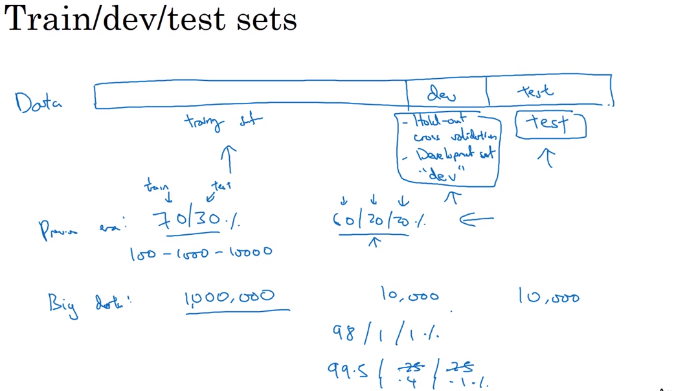 Train/dev/test sets
Data dev test
training set
- Hold-out cross validation
- Development set "dev"
test
train test
Previous era: 70/30% 60/20/20%
100-1000-10000
Big data: 1,000,000 10,000 10,000
98/1/1%
99.5/ 25 / 25
.4 .1%